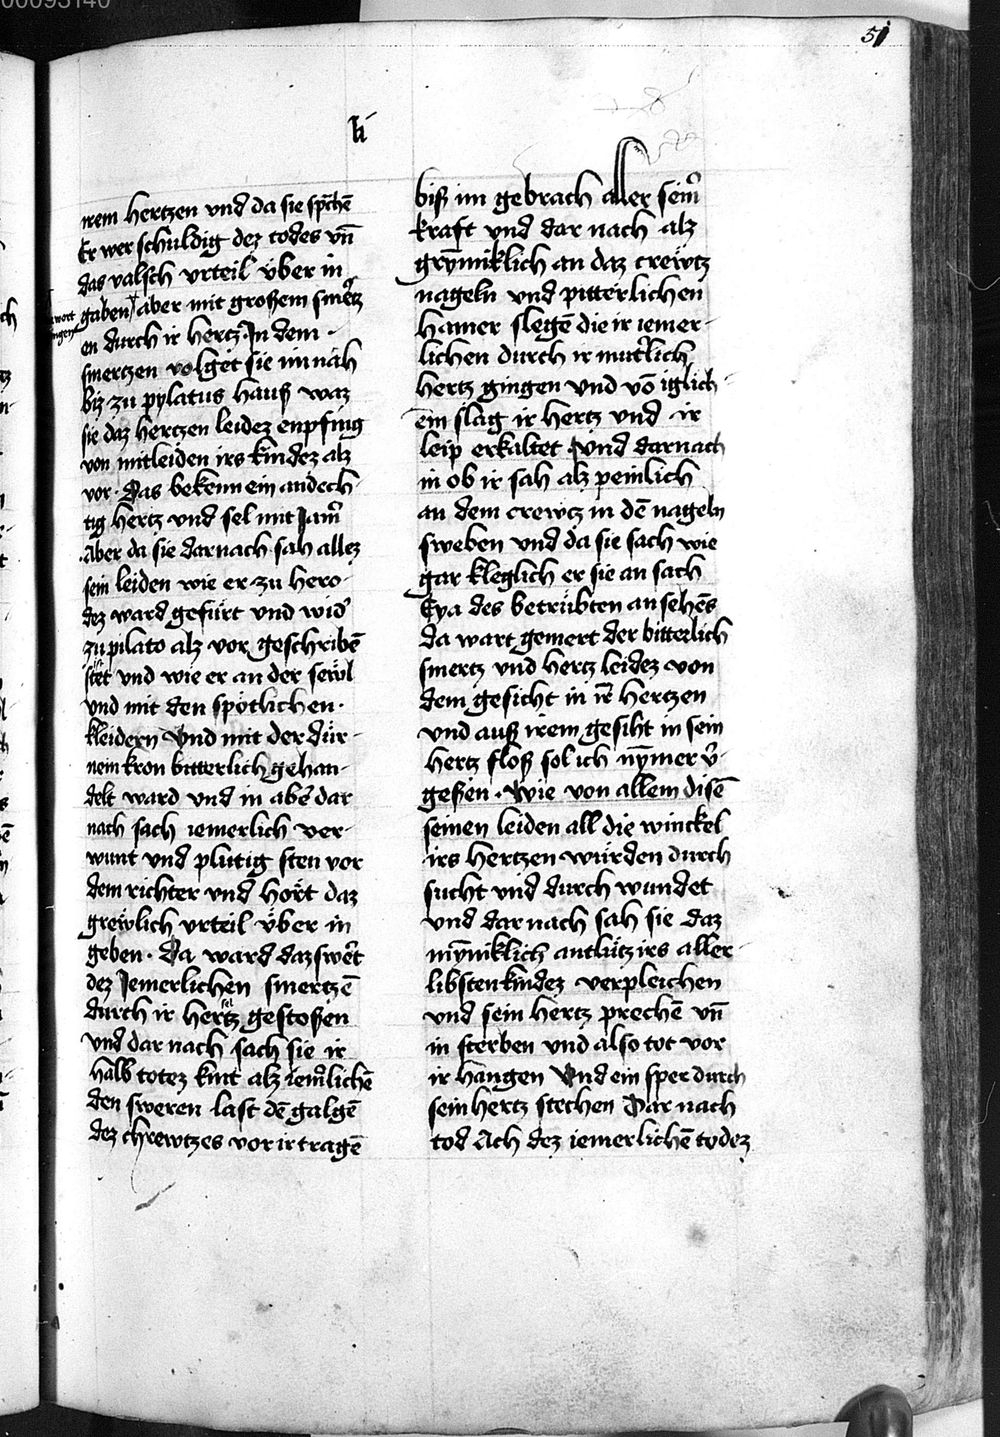 00093140
51
li
irem hertzen vnd da sie sp̄chē
Er wer schuldig dez todes vn̄
das valsch vrteil v̈ber in
gaben aber mit großem smertz
en durch ir hertz · In dem ·
smertzen volget sie im nah
biz zu pylatus hauß waz
sie daz hertzen leidez enpfing
von mitleiden irs kindez alz
vor · Das bekenn ein andech
tig hertz vnd sel mit Jam̄
Aber da sie darnach sah allez
sein leiden wie er zu hero-
dez ward gefürt vnd wid̓
zu pilato alz vor geschribē
stet vnd wie er an der sewl
vnd mit den spötlichen ·
kleidern Vnd mit der dür-
nein kron bitterlich gehan-
delt ward vnd in abē dar
nach sach iemerlich ver-
wunt vnd plutig sten vor
dem richter vnd hört daz
grewlich vrteil v̈ber in
geben · Da ward daz swert
dez Jemerlichen smertzē
durch ir hertz gestoßen
vnd dar nach sach sie ir
halb totez kint alz iem̄lichē
den sweren last dē galgē
dez chrewtzes vor ir tragē
biß im gebrach aller sein̄
kraft vnd dar nach alz
grȳmiklich an daz crewtz
nageln vnd pitterlichen
hamer slegē die ir iemer-
lichen durch ir mut̓lich
hertz gingen vnd vō iglich-
ēm slag ir hertz vnd ir
leip erkaltet Vnd darnach
in ob ir sah alz peinlich
an dem crewcz in dē nageln
sweben vnd da sie sach wie
gar kleglich er sie an sach
Eya des betrübten ansehēs
da wart gemert der bitterlich
smertz vnd hertz leidez von
dem gesicht in ir̄ hertzen
vnd auß irem gesiht in sein
hertz floß sol ich nȳmer v̓-
geßen · Wie von allem disē
seinen leiden all die winckel
irs hertzen würden durch
sucht vnd durch wundet
vnd dar nach sah sie daz
mȳniklich antlütz irs aller-
libsten kindez verpleichen
vnd sein hertz prechē vn̄
in sterben vnd also tot vor
ir hangen Vnd ein sper durch
sein hertz stechen Dar nach
tod Ach dez iemerlichē todez